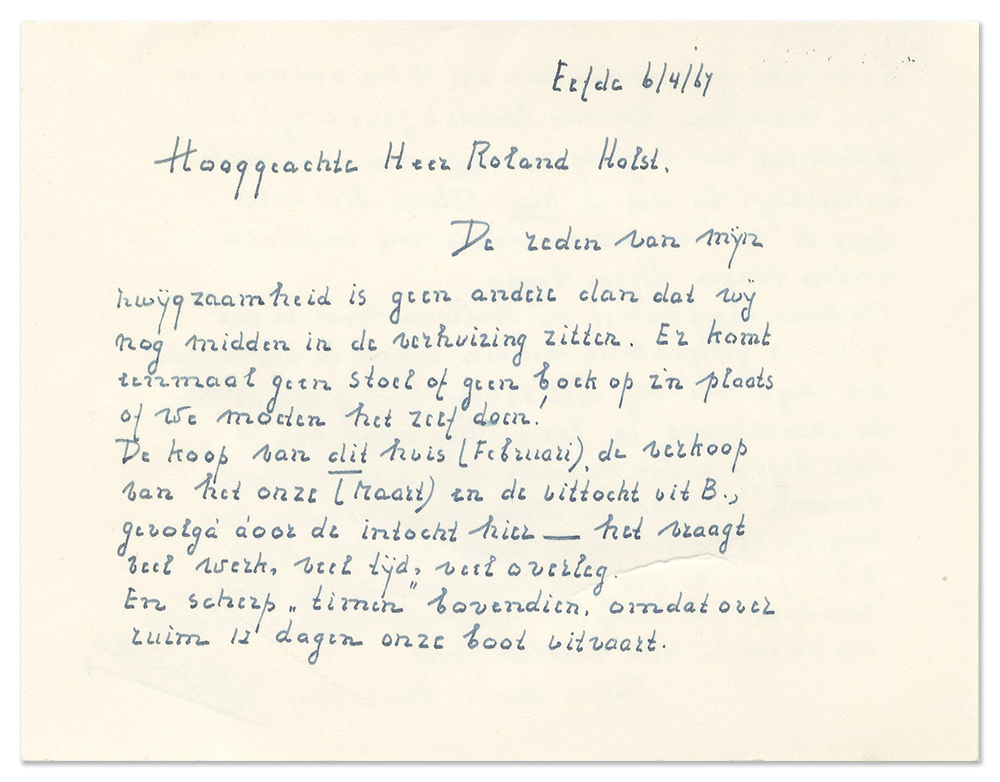 Eefde 6/4/64
Hooggeachte Heer Roland Holst.
De reden van mijn
zwijgzaamheid is geen andere dan dat wij
nog midden in de verhuizing zitten. Er komt
eenmaal geen stoel of geen boek op z'n plaats
of we moeten het zelf doen!
De koop van dit huis (Februari), de verkoop
van het onze (Maart) en de uittocht uit B.,
gevolgd door de intocht hier — het vraagt
veel werk, veel tijd, veel overleg.
En scherp „timen" bovendien, omdat over
ruim 12 dagen onze boot uitvaart.